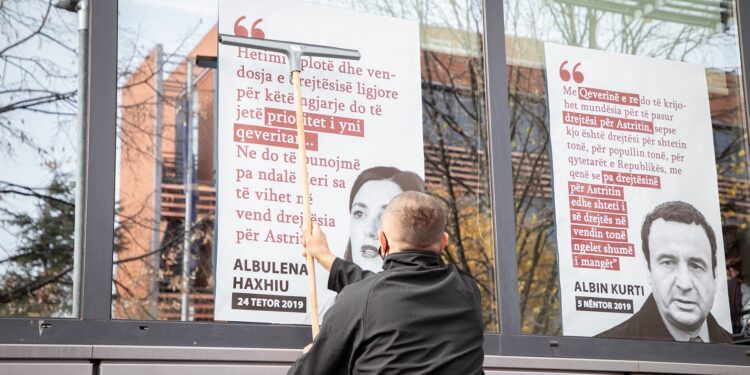 “
Hetimi plotë dhe ven-
dosja e drejtësisë ligjore
për këtë ngjarje do të
jetë prioritet i yni
qeveritar...
Ne do të punojmë
pa ndalë deri sa
të vihet në
vend drejtësia
për Astri
ALBULENA
HAXHIU
24 TETOR 2019
“
Me Qeverinë e re do të krijo-
het mundësia për të pasur
drejtësi për Astritin, sepse
kjo është drejtësi për shtetin
tonë, për popullin tonë, për
qytetarët e Republikës, me
qenë se pa drejtësinë
për Astritin
edhe shteti
e së drejtës në
vendin tonë
ngelet shumë
i mangët”
ALBIN KURTI
5 NËNTOR 2019